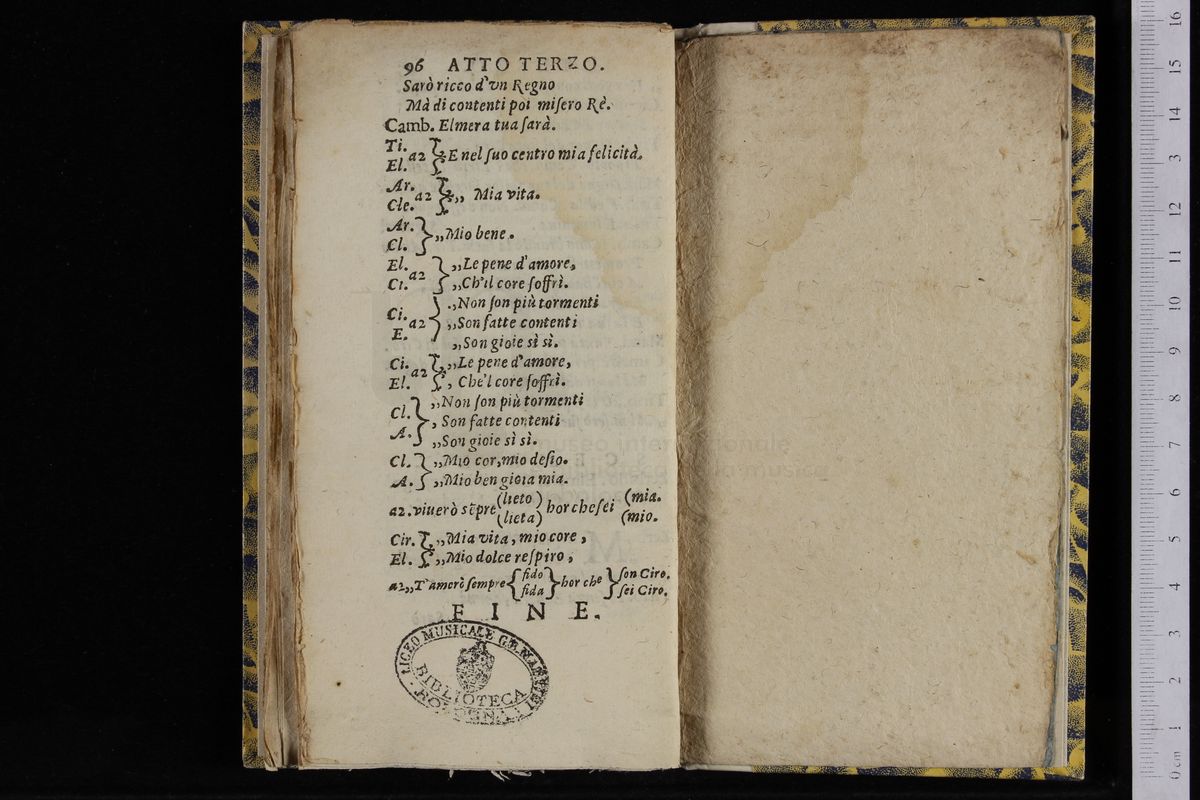 96 ATTO TERZO.
Sarò ricco d'vn Regno
Mà di contenti poi miſero Rè.
Camb. Elmera tua ſarà.
Ti.
El. a2 E nel ſuo centro mia felicità.
Ar.
Cle. a2 „ Mia vita.
Ar.
Cl. „Mio bene.
El. „Le pene d'amore,
Ci. a2 „Ch'il core ſoffrì.
„Non ſon più tormenti
Ci. a2 „Son fatte contenti
E. „Son gioie sì sì.
Ci. a2 „Le pene d'amore,
El. , Che'l core ſoffrì.
Cl. „Non ſon più tormenti
A. , Son fatte contenti
„Son gioie sì sì.
Cl. „Mio cor, mio deſio.
A. „Mio ben gioia mia.
a2. viuerò sẽpre (lieto) (lieta) hor che ſei (mia. (mio.
Cir. „Mia vita, mio core,
El. „Mio dolce reſpiro,
a2 „T'amerò ſempre {fido fida} hor che }ſon Ciro. ſei Ciro.
FINE.
LICEO MUSICALE
BIBLIOTECA
museo internazionale
biblioteca della musica
0 cm 1 2 3 4 5 6 7 8 9 10 11 12 13 14 15 16